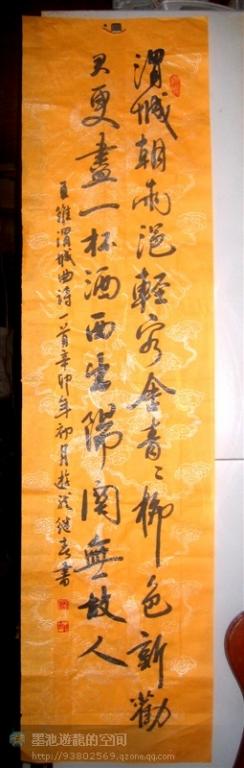 渭城朝雨浥轻客舍青〻柳色新劝
君更盡一杯酒西出陽関無故人
王維渭城曲詩一首辛卯年初月遊龍继春書
墨池遊龍的空间
http://93802569.qzone.qq.com